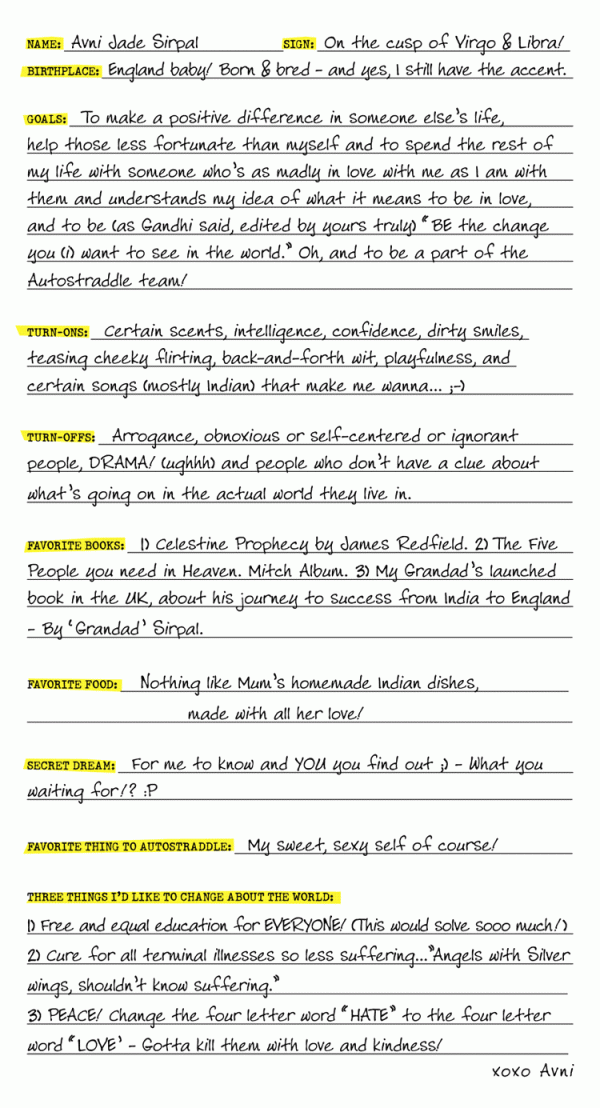 NAME: Avni Jade Sirpal SIGN: On the cusp of Virgo & Libra!
BIRTHPLACE: England baby! Born & bred - and yes, I still have the accent.
GOALS: To make a positive difference in someone else's life,
help those less fortunate than myself and to spend the rest of
my life with someone who's as madly in love with me as I am with
them and understands my idea of what it means to be in love,
and to be (as Gandhi said, edited by yours truly) "BE the change
you (i) want to see in the world." Oh, and to be a part of the
Autostraddle team!
TURN-ONS: Certain scents, intelligence, confidence, dirty smiles,
teasing cheeky flirting, back-and-forth wit, playfulness, and
certain songs (mostly Indian) that make me wanna... ;-)
TURN-OFFS: Arrogance, obnoxious or self-centered or ignorant
people, DRAMA! (ughhh) and people who don't have a clue about
what's going on in the actual world they live in.
FAVORITE BOOKS: 1) Celestine Prophecy by James Redfield. 2) The Five
People you need in Heaven. Mitch Album. 3) My Grandad's launched
book in the UK, about his journey to success from India to England
- By 'Grandad' Sirpal.
FAVORITE FOOD: Nothing like Mum's homemade Indian dishes,
made with all her love!
SECRET DREAM: For me to know and YOU you find out ;) - What you
waiting for!? :P
FAVORITE THING TO AUTOSTRADDLE: My sweet, sexy self of course!
THREE THINGS I'D LIKE TO CHANGE ABOUT THE WORLD:
1) Free and equal education for EVERYONE! (This would solve sooo much!)
2) Cure for all terminal illnesses so less suffering..."Angels with Silver
wings, shouldn't know suffering."
3) PEACE! Change the four letter word "HATE" to the four letter
word "LOVE' - Gotta kill them with love and kindness!
xoxo Avni